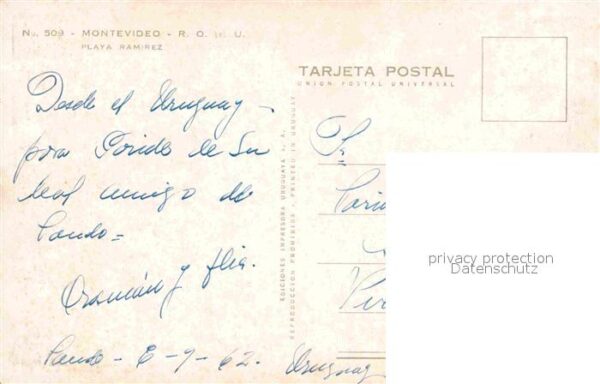 No. 509 - MONTEVIDEO - R. O. del U.
PLAYA RAMIREZ
TARJETA POSTAL
UNION POSTAL UNIVERSAL
Desde el Uruguay -
para de Su
leal amigo de
Pando =
y flia.
Pando - 6 - 9 - 62. Uruguay
EDICIONES IMPRESORA URUGUAYA S. A.
REPRODUCCION PROHIBIDA PRINTED IN URUGUAY
Sr
privacy protection
Datenschutz